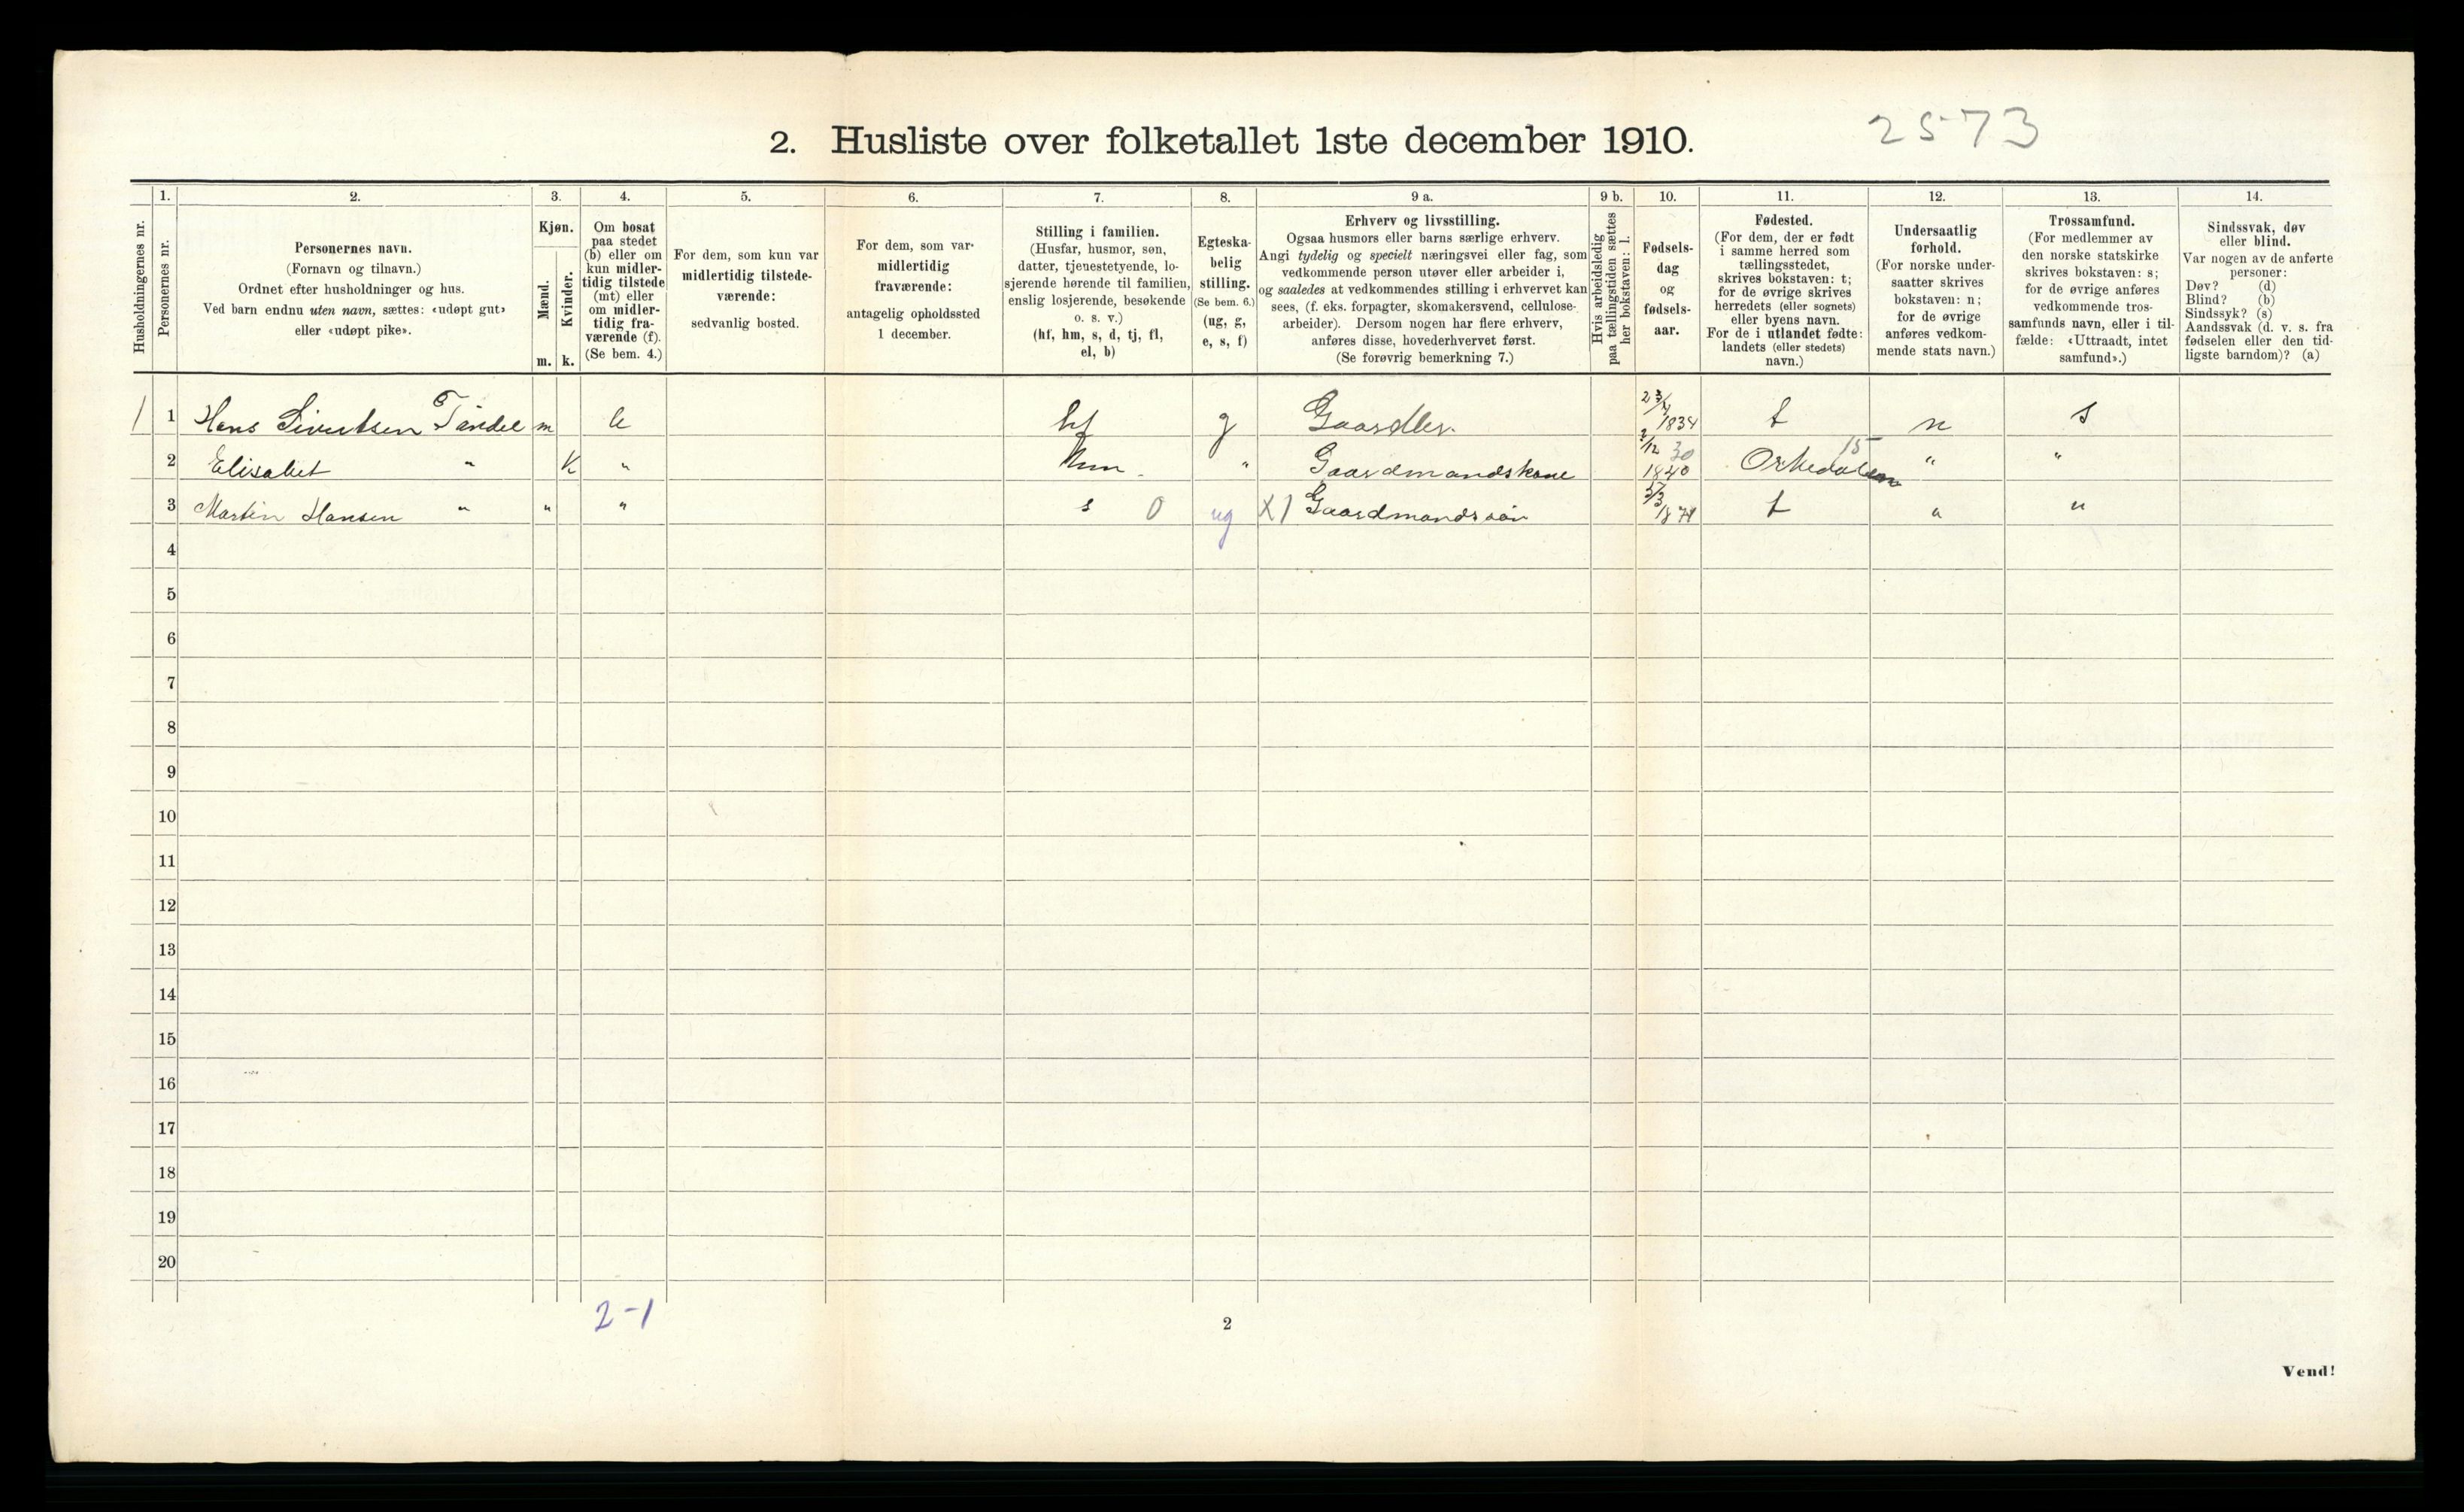 2. Husliste over folketallet 1ste december 1910.
2573
1. 2. 3. 4. 5. 6. 7. 8. 9 a. 9 b. 10. 11. 12. 13. 14.
Husholdningernes nr.
Personernes nr.
Personernes navn.
(Fornavn og tilnavn.)
Ordnet efter husholdninger og hus.
Ved barn endnu uten navn, sættes: «udøpt gut»
eller «udøpt pike».
Kjøn.
Mænd.
m.
Kvinder.
k.
Om bosat
paa stedet
(b) eller om
kun midler-
tidig tilstede
(mt) eller
om midler-
tidig fra-
værende (f).
(Se bem. 4.)
For dem, som kun var
midlertidig tilstede-
værende:
sedvanlig bosted.
For dem, som var
midlertidig
fraværende:
antagelig opholdssted
1 december.
Stilling i familien.
(Husfar, husmor, søn,
datter, tjenestetyende, lo-
sjerende hørende til familien,
enslig losjerende, besøkende
o. s. v.)
(hf, hm, s, d, tj, fl,
el, b)
Egteska-
belig
stilling.
(Se bem. 6.)
(ug, g,
e, s, f)
Erhverv og livsstilling.
Ogsaa husmors eller barns særlige erhverv.
Angi tydelig og specielt næringsvei eller fag, som
vedkommende person utøver eller arbeider i,
og saaledes at vedkommendes stilling i erhvervet kan
sees, (f. eks. forpagter, skomakersvend, cellulose-
arbeider). Dersom nogen har flere erhverv,
anføres disse, hovederhvervet først.
(Se forøvrig bemerkning 7.)
Hvis arbeidsledig
paa tællingstiden sættes
her bokstaven: l.
Fødsels-
dag
og
fødsels-
aar.
Fødested.
(For dem, der er født
i samme herred som
tællingsstedet,
skrives bokstaven: t;
for de øvrige skrives
herredets (eller sognets)
eller byens navn.
For de i utlandet fødte:
landets (eller stedets)
navn.)
Undersaatlig
forhold.
(For norske under-
saatter skrives
bokstaven: n;
for de øvrige
anføres vedkom-
mende stats navn.)
Trossamfund.
(For medlemmer av
den norske statskirke
skrives bokstaven: s;
for de øvrige anføres
vedkommende tros-
samfunds navn, eller i til-
fælde: «Uttraadt, intet
samfund».)
Sindssvak, døv
eller blind.
Var nogen av de anførte
personer:
Døv? (d)
Blind? (b)
Sindssyk? (s)
Aandssvak (d. v. s. fra
fødselen eller den tid-
ligste barndom)? (a)
1 1 Hans Sivertsen m b hf g 1834 t n s
2 Elisabet " K " " Gaardmandskone 2/12 30 1840 Orkedalen 15 " "
3 Martin Hansen " " " s 0 ug X1 Gaardmandssøn t " "
4
5
6
7
8
9
10
11
12
13
14
15
16
17
18
19
20
2-1
2
Vend!